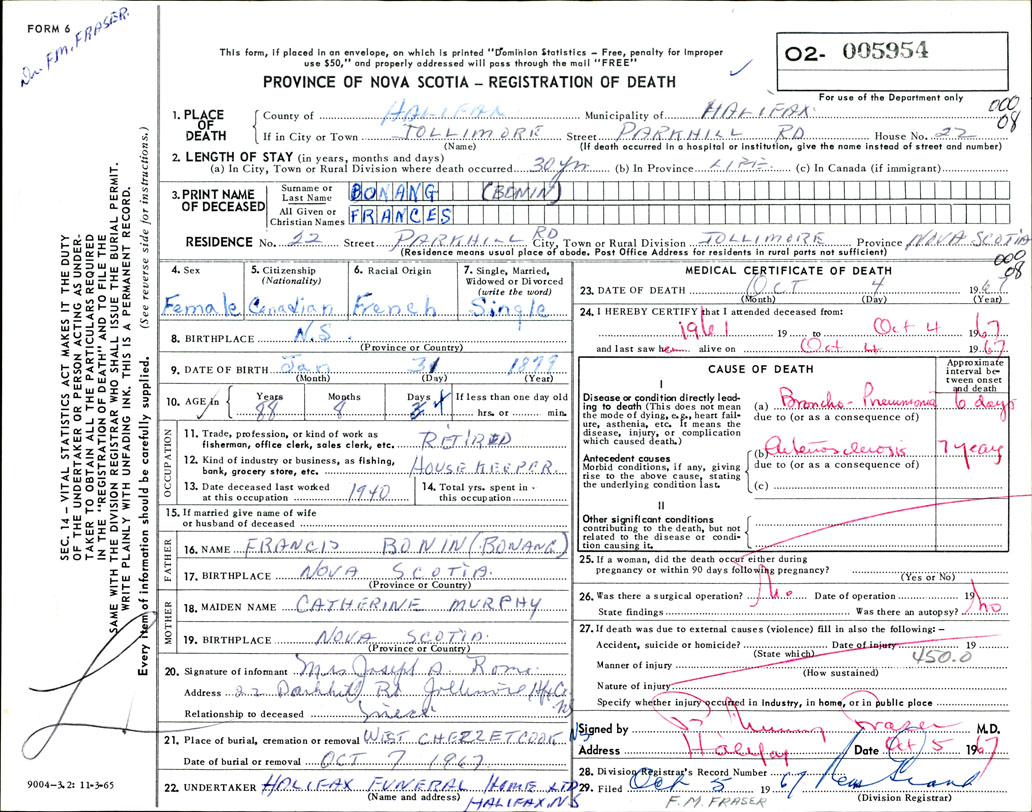 FORM 6
Dr. F.M. FRASER.
This form, if placed in an envelope, on which is printed "Dominion Statistics – Free, penalty for improper
use $50," and properly addressed will pass through the mail "FREE"
PROVINCE OF NOVA SCOTIA – REGISTRATION OF DEATH
02- 005954
For use of the Department only
000
08
1. PLACE OF DEATH
County of HALIFAX Municipality of HALIFAX
If in City or Town JOLLIMORE Street PARKHILL RD House No. 22
(Name) (If death occurred in a hospital or institution, give the name instead of street and number)
2. LENGTH OF STAY (in years, months and days)
(a) In City, Town or Rural Division where death occurred 30 yrs (b) In Province LIFE (c) In Canada (if immigrant)
3. PRINT NAME OF DECEASED
Surname or Last Name BONANG (BONIN)
All Given or Christian Names FRANCES
RESIDENCE No. 22 Street PARKHILL RD City, Town or Rural Division JOLLIMORE Province NOVA SCOTIA
(Residence means usual place of abode. Post Office Address for residents in rural parts not sufficient)
000
08
4. Sex
Female
5. Citizenship
(Nationality)
Canadian
6. Racial Origin
French
7. Single, Married,
Widowed or Divorced
(write the word)
Single
8. BIRTHPLACE N.S.
(Province or Country)
9. DATE OF BIRTH Jan 31 1879
(Month) (Day) (Year)
10. AGE in
Years Months Days If less than one day old
88 8 4 hrs. or min.
OCCUPATION
11. Trade, profession, or kind of work as
fisherman, office clerk, sales clerk, etc. RETIRED
12. Kind of industry or business, as fishing,
bank, grocery store, etc. HOUSE KEEPER
13. Date deceased last worked
at this occupation 1940
14. Total yrs. spent in
this occupation
15. If married give name of wife
or husband of deceased
FATHER
16. NAME FRANCIS BONIN (BONANG)
17. BIRTHPLACE NOVA SCOTIA
(Province or Country)
MOTHER
18. MAIDEN NAME CATHERINE MURPHY
19. BIRTHPLACE NOVA SCOTIA
(Province or Country)
20. Signature of informant Mrs Joseph A.
Address 22 Parkhill Rd Jollimore Hfx Co. NS
Relationship to deceased niece
21. Place of burial, cremation or removal WEST CHEZZETCOOK NS
Date of burial or removal OCT 7 1967
22. UNDERTAKER HALIFAX FUNERAL HOME LTD
(Name and address) HALIFAX N S
MEDICAL CERTIFICATE OF DEATH
23. DATE OF DEATH OCT 4 1967
(Month) (Day) (Year)
24. I HEREBY CERTIFY that I attended deceased from:
1961 19 to Oct 4 1967
and last saw her alive on Oct 4 1967
CAUSE OF DEATH
Approximate
interval be-
tween onset
and death
I
Disease or condition directly lead-
ing to death (This does not mean
the mode of dying, e.g., heart fail-
ure, asthenia, etc. It means the
disease, injury, or complication
which caused death.)
(a) Broncho-Pneumonia 6 days
due to (or as a consequence of)
Antecedent causes
Morbid conditions, if any, giving
rise to the above cause, stating
the underlying condition last.
(b) Arteriosclerosis 7 years
due to (or as a consequence of)
(c)
II
Other significant conditions
contributing to the death, but not
related to the disease or condi-
tion causing it.
25. If a woman, did the death occur either during
pregnancy or within 90 days following pregnancy?
(Yes or No)
26. Was there a surgical operation? No Date of operation 19
State findings Was there an autopsy? no
27. If death was due to external causes (violence) fill in also the following: –
Accident, suicide or homicide? Date of injury 19
(State which) 450.0
Manner of injury
(How sustained)
Nature of injury
Specify whether injury occurred in Industry, in home, or in public place
Signed by Fraser M.D.
Address Halifax Date Oct 5 1967
28. Division Registrar's Record Number
29. Filed Oct 5 1967
F.M. FRASER
(Division Registrar)
SEC. 14 – VITAL STATISTICS ACT MAKES IT THE DUTY
OF THE UNDERTAKER OR PERSON ACTING AS UNDER-
TAKER TO OBTAIN ALL THE PARTICULARS REQUIRED
IN THE "REGISTRATION OF DEATH" AND TO FILE THE
SAME WITH THE DIVISION REGISTRAR WHO SHALL ISSUE THE BURIAL PERMIT.
WRITE PLAINLY WITH UNFADING INK. THIS IS A PERMANENT RECORD.
Every item of information should be carefully supplied. (See reverse side for instructions.)
9004-3.2: 11-3-65